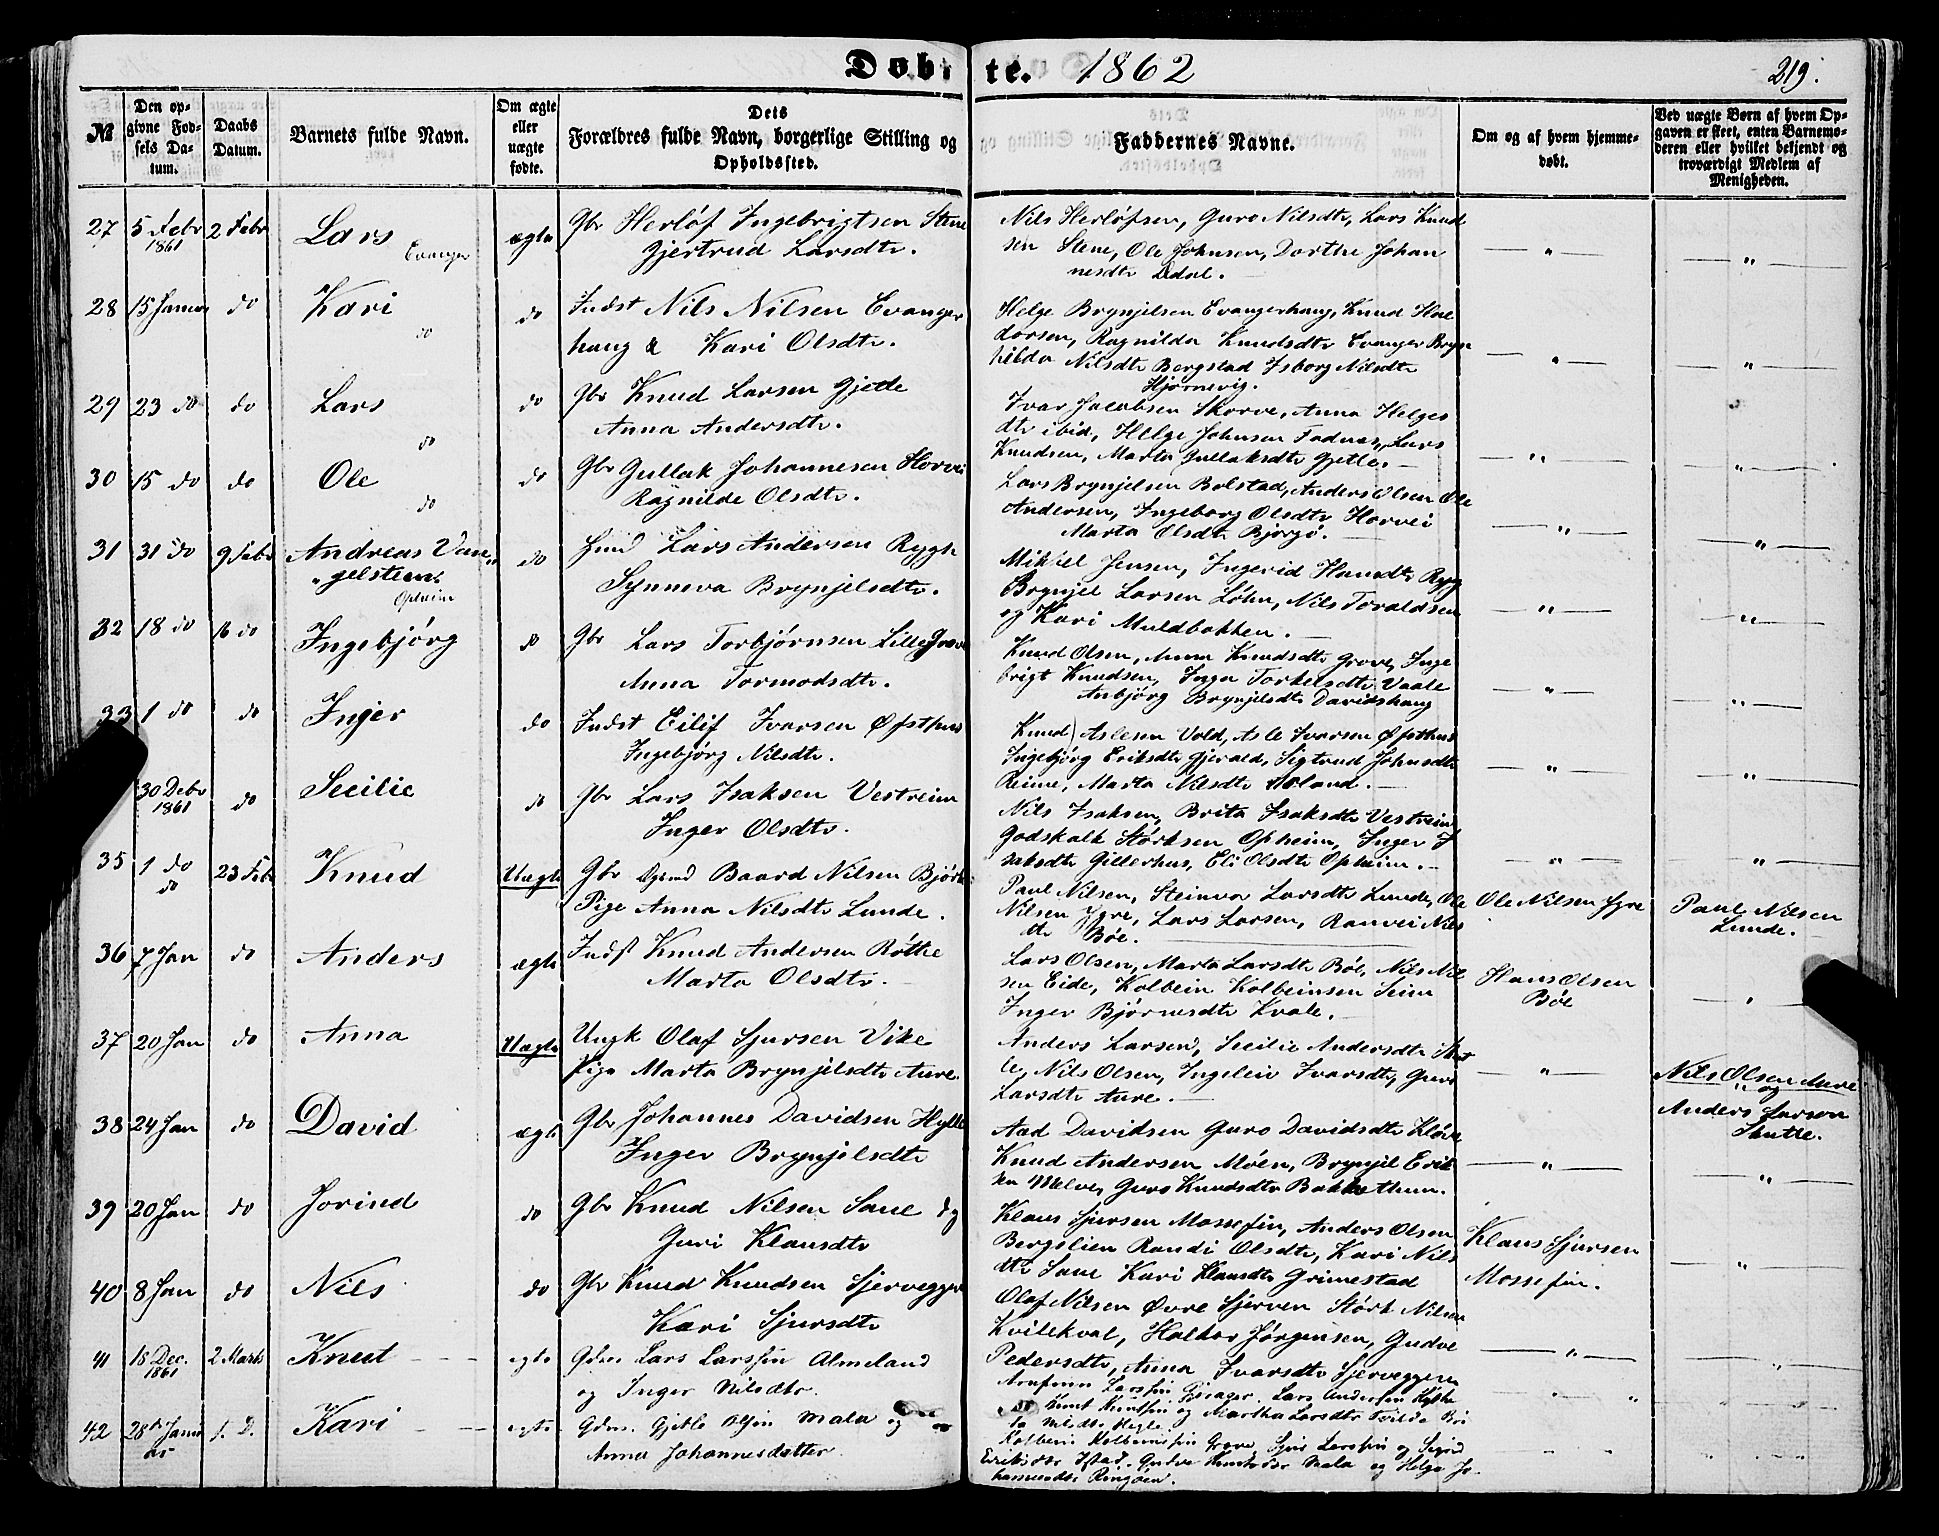 Døbte. 1862
219.
№
Den opgivne Fødsels Datum.
Daabs Datum.
Barnets fulde Navn.
Om ægte eller uægte fødte.
Dets Forældres fulde Navn, borgerlige Stilling og Opholdssted.
Faddernes Navne.
Om og af hvem hjemmedøbt.
Ved uægte Børn af hvem Opgaven er skeet, enten Barnemoderen eller hvilket bekjendt og troværdigt Medlem af Menigheden.
27 5 Febr 1861 2 Febr Lars Evanger ægte Gbr Herlöf Ingebrigtsen Stene
Gjertrud Larsdtr.
Nils Herlöfsen, Guro Nilsdtr, Lars Knud
sen Stene, Ole Johnsen, Dorthe Johan
nesdtr Ddal.
28 15 Januar do Kari do do Indst Nils Nilsen Evanger
haug & Kari Olsdtr.
Helge Brynjelsen Evangerhaug, Knud Hal
dorsen, Ragnilda Knudsdtr Evanger Bryn
hilda Nilsdtr Bergstad Isborg Nilsdtr
Hjörnevig.
29 23 do do Lars do do Gbr Knud Larsen Gjelle
Anna Andersdtr.
Ivar Jacobsen Skorve, Anna Helges
dtr ibid, Helge Johnsen Fadnes, Lars
Knudsen, Marta Gullaksdtr Gjelle.
30 15 do do Ole do do Gbr Gullak Johannesen Horvei
Ragnilde Olsdtr.
Lars Brynjelsen Bolstad, Anders Olsen Ole
Andersen, Ingeborg Olsdtr Horvei
Marta Olsdtr Bjorgo.
31 31 do 9 Febr Andreas Van
gelsteen Opheim do Hmd Lars Andersen Rygh
Synneva Brynjelsdtr.
Mikkel Jensen, Ingerid Hansdtr Ryg
Brynjel Larsen Löhn, Nils Toraldsen
og Kari Muldbakken.
32 18 do 16 do Ingebjörg do Gbr Lars Torbjörnsen LilleGrove
Anna Tormodsdtr.
Knud Olsen, Anna Knudsdtr Grove, Inge
brigt Knudsen, Inga Torkelsdtr Vaale
Anbjörg Brynjelsdtr Davidshaug
33 1 do do Inger do Indst Eilif Ivarsen Øfsthus
Ingebjörg Nilsdtr.
Knud Aslesen Vold, Asle Ivarsen Øfsthus
Ingebjörg Eriksdtr Gjerald, Sigtrud Johnsdtr
Reime, Marta Nilsdtr
30 Debr 1861 do Secilie do Gbr Lars Isaksen Vestreim
Inger Olsdtr.
Nils Isaksen, Brita Isaksdtr Vestreim
Godskalk Störksen Opheim, Inger I
saksdtr Gillerhus, Eli Olsdtr Opheim.
35 1 do do 23 Febr Knud Uægte Gbr Baard Nilsen Björk
Pige Anna Nilsdtr Lunde.
Paul Nilsen, Steinva Larsdtr Lunde, Ole
Nilsen Lars Larsen, Ranvei Nils
dtr Böe.
Ole Nilsen
Paul Nilsen
Lunde.
36 7 Jan do Anders ægte Indst Knud Andersen Röthe
Marta Olsdtr.
Lars Olsen, Marta Larsdtr Böe, Nils Nil
sen Eide, Kolbein Kolbeinsen Seim
Inger Björnesdtr Kvale.
Hans Olsen
Böe
37 20 Jan do Anna Uægte Ungk Olaf Sjursen Vike
Pige Marta Brynjelsdtr Aure.
Anders Larsen, Secilie Andersdtr Skut
le, Nils Olsen, Ingeleiv Ivarsdtr, Guro
Larsdtr Aure.
Nils Olsen Aure
og
Anders Larsen
Skutle.
38 24 Jan do David ægte Gbr Johannes Davidsen Hylle
Inger Brynjelsdtr
Aad Davidsen Guro Davidsdtr Klöve
Knud Andersen Möen, Brynjel Erik
sen Melve, Guro Knudsdtr Bakkethun.
39 20 Jan do Jorind do Gbr Knud Nilsen Saue og
Guri Klausdtr
Klaus Sjursen Mossefin, Anders Olsen
Bergslien Randi Olsdtr, Kari Nils
dtr Saue Kari Klausdtr Grimestad
Klaus Sjursen
Mossefin.
40 8 Jan do Nils do Gbr Knud Knudsen Sjerveggen
Kari Sjursdtr
Olaf Nilsen Øvre Sjerven Störk Nilsen
Kvilekval, Halhor Jörgensen, Gudve
Pedersdtr, Anna Ivarsdtr Sjerveggen
41 18 Dec. 1861 2 Marts Knut egte Gdm. Lars Larssen Almeland
og Inger Nilsdtr.
Larssen Gjerager, Lars Anderssen
Knut Knutssen og Martha Larsdtr Tvilde Bri
ta Nilsdtr
42 28 Januar Kari egte Gdm. Gjetle Olsen Mala og
Anna Johannesdatter
Kolbein Kolbeinssen Grove, Sjur Larssen og Sigrid
Eriksdtr Istad, Gudve Knutsdtr Mala og Helga Jo
hannesdtr Ringöen.